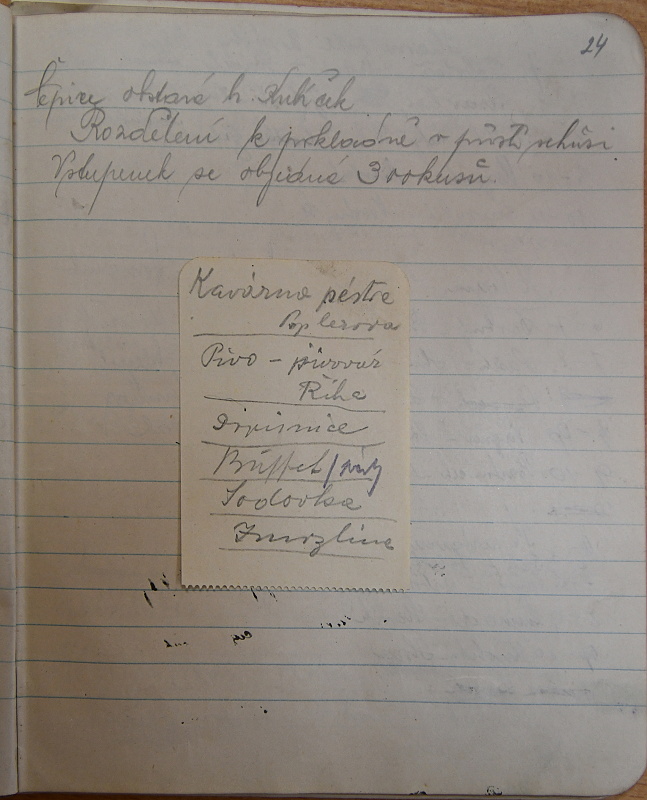 24
čepice obstará h. Kubíček
Rozdělení k pokladně v příští schůsi
Vstupenek se objedná 300 kusů.
Kavárna péstre
Poplerova
Pivo – pivovár
Říha
Dopisnice
Büffet/
Sodovka
Zmrzlina